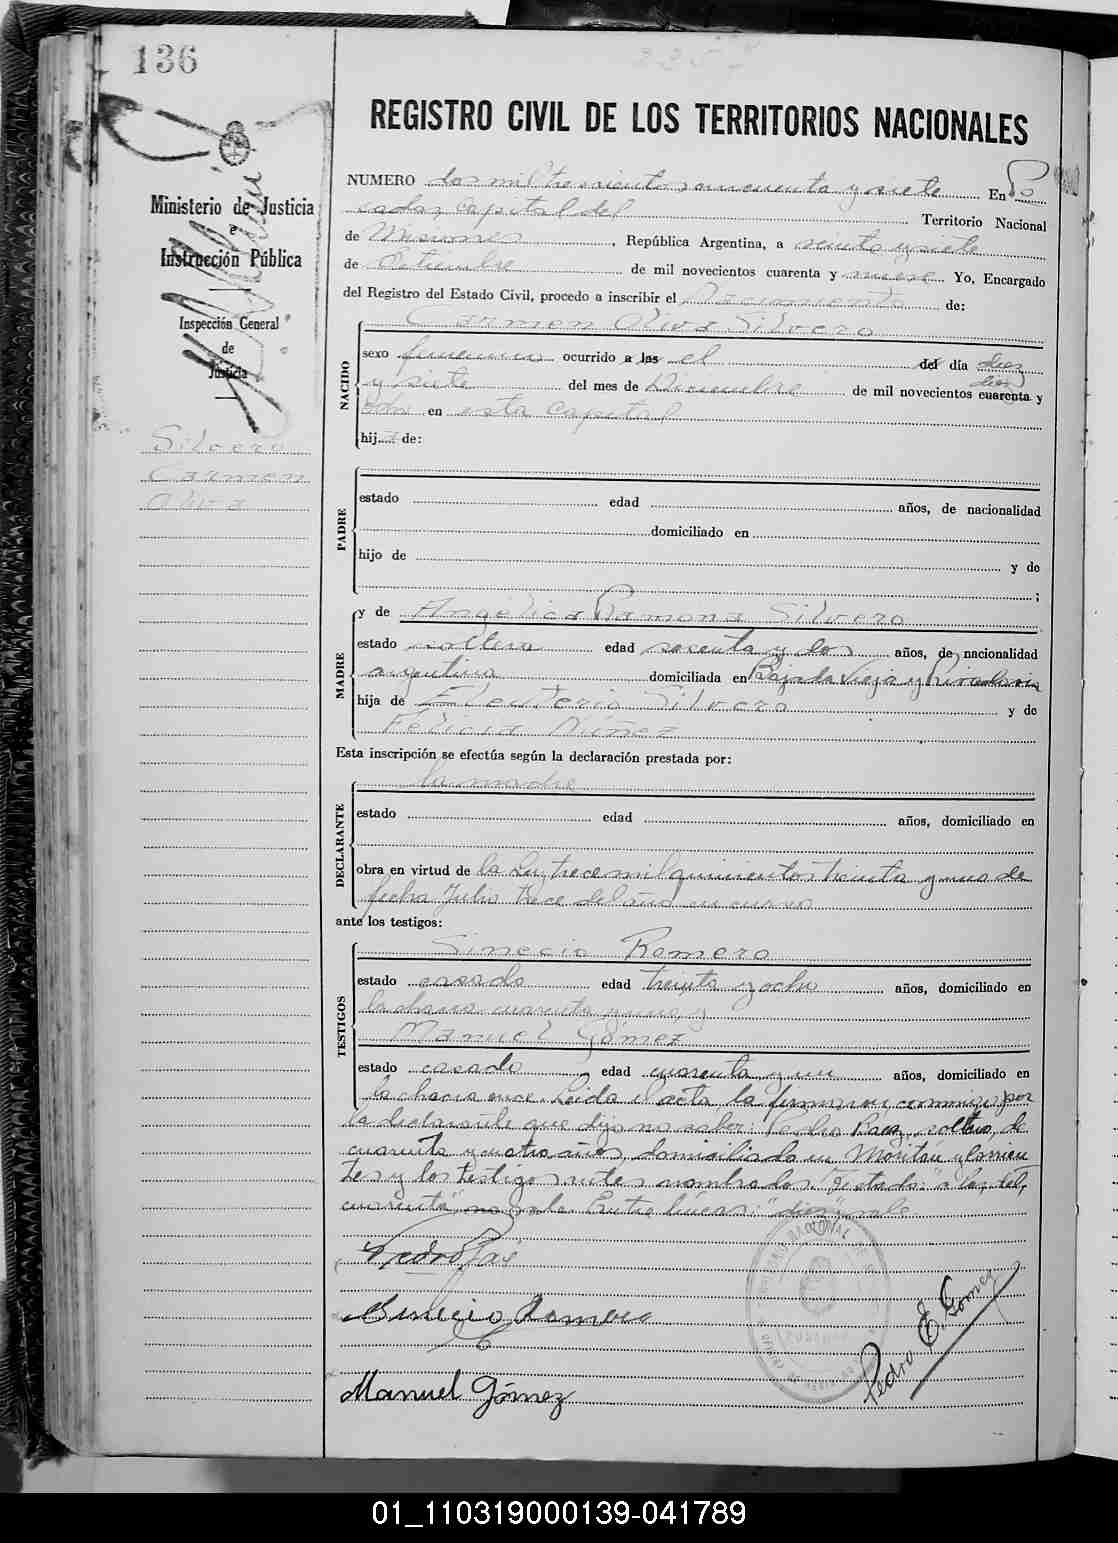 136
REGISTRO CIVIL DE LOS TERRITORIOS NACIONALES
Ministerio de Justicia
e
Instrucción Pública
Inspección General
de
Justicia
Silvero
Carmen
Oliva
NUMERO dos mil trescientos cincuenta y siete En Po
sadas Capital del Territorio Nacional
de Misiones, República Argentina, a veinte y siete
de Octubre de mil novecientos cuarenta y nueve Yo, Encargado
del Registro del Estado Civil, procedo a inscribir el Nacimiento de:
NACIDO
Carmen Oliva Silvero
sexo femenino ocurrido a las el del día diez
y siete del mes de Diciembre de mil novecientos cuarenta y
diez
en esta Capital
hija de:
PADRE
estado edad años, de nacionalidad
domiciliado en
hijo de y de
;
MADRE
y de Angélica Ramona Silvero
estado soltera edad sesenta y dos años, de nacionalidad
argentina domiciliada en Bajada Vieja y Rivadavia
hija de Eleuterio Silvero y de
Felicia Núñez
Esta inscripción se efectúa según la declaración prestada por:
DECLARANTE
la madre
estado edad años, domiciliado en
obra en virtud de la Ley trece mil quinientos treinta y uno de
fecha Julio trece del año en curso
ante los testigos:
TESTIGOS
Sinecio Romero
estado casado edad treinta y ocho años, domiciliado en
la chacra cuarenta y uno y
Manuel Gómez
estado casado edad cuarenta y un años, domiciliado en
la chacra once. Leída el acta la firmaron conmigo por
la declarante que dijo no saber: Pedro Paez, soltero, de
cuarenta y cuatro años, domiciliado en Moritán y Corrien
tes y los testigos antes nombrados. Testado: "a las, del,
cuarenta" no vale. Entre líneas: "diez" vale
Pedro Paé
Sinecio Romero
Manuel Gómez
Pedro E. Gomez
01_110319000139-041789